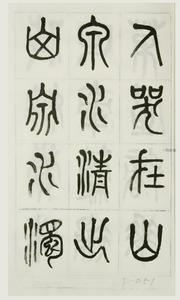 人哭在山
泉水清出
山泉水濁